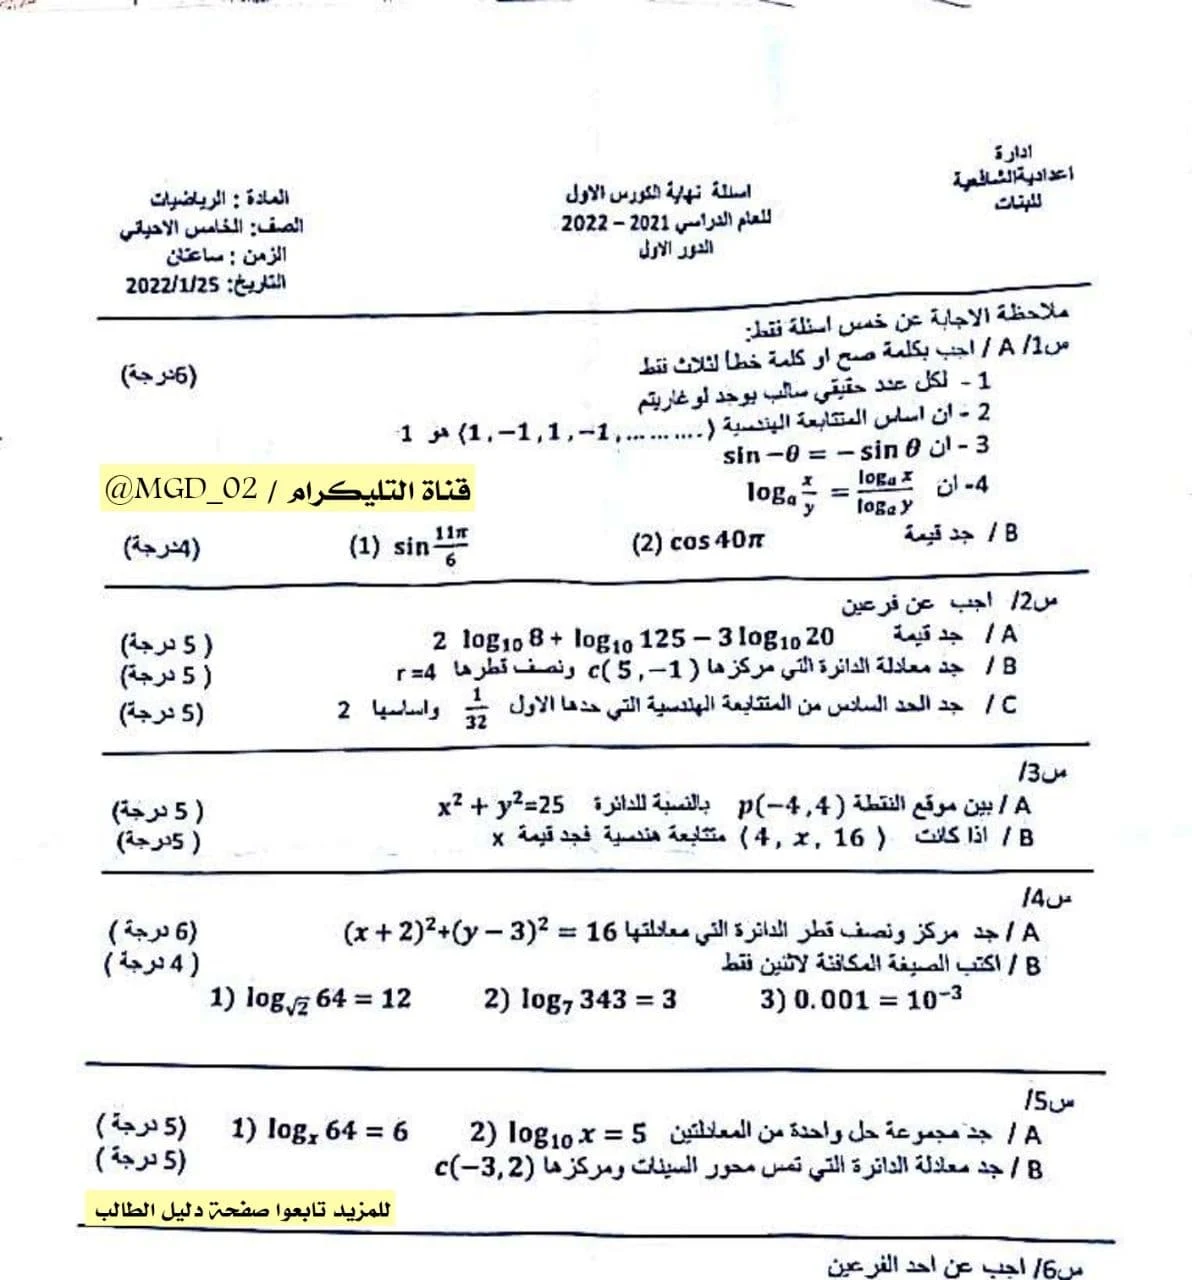 ادارة
اعدادية الشافعية
للبنات
اسئلة نهاية الكورس الاول
للعام الدراسي 2021 – 2022
الدور الاول
المادة : الرياضيات
الصف: الخامس الاحيائي
الزمن : ساعتان
التاريخ: 2022/1/25
ملاحظة الاجابة عن خمس اسئلة فقط:
س1/ A / اجب بكلمة صح او كلمة خطأ لثلاث فقط (6درجة)
1 - لكل عدد حقيقي سالب يوجد لوغاريتم
2 - ان اساس المتتابعة الهندسية (1, −1, 1, −1, ... ... ....) هو 1
3 - ان sin −θ = − sin θ
4- ان logₐ x/y = logₐ x / logₐ y
قناة التليكرام / @MGD_02
B / جد قيمة (2) cos 40π (1) sin 11π/6 (4درجة)
س2/ اجب عن فرعين
A / جد قيمة 2 log₁₀ 8 + log₁₀ 125 − 3 log₁₀ 20 ( 5 درجة)
B / جد معادلة الدائرة التي مركزها c( 5 , −1 ) ونصف قطرها r =4 ( 5 درجة)
C / جد الحد السادس من المتتابعة الهندسية التي حدها الاول 1/32 واساسها 2 (5 درجة)
س3/
A / بين موقع النقطة p(−4 ,4 ) بالنسبة للدائرة x² + y²=25 ( 5 درجة)
B / اذا كانت ( 4 , x , 16 ) متتابعة هندسية فجد قيمة x ( 5درجة)
س4/
A / جد مركز ونصف قطر الدائرة التي معادلتها (x + 2)²+(y − 3)² = 16 (6 درجة )
B / اكتب الصيغة المكافئة لاثنين فقط ( 4 درجة )
1) log√2 64 = 12 2) log₇ 343 = 3 3) 0.001 = 10⁻³
س5/
A / جد مجموعة حل واحدة من المعادلتين 2) log₁₀ x = 5 1) logₓ 64 = 6 (5 درجة )
B / جد معادلة الدائرة التي تمس محور السينات ومركزها c(−3, 2) (5 درجة )
للمزيد تابعوا صفحة دليل الطالب
س6/ اجب عن احد الفرعين